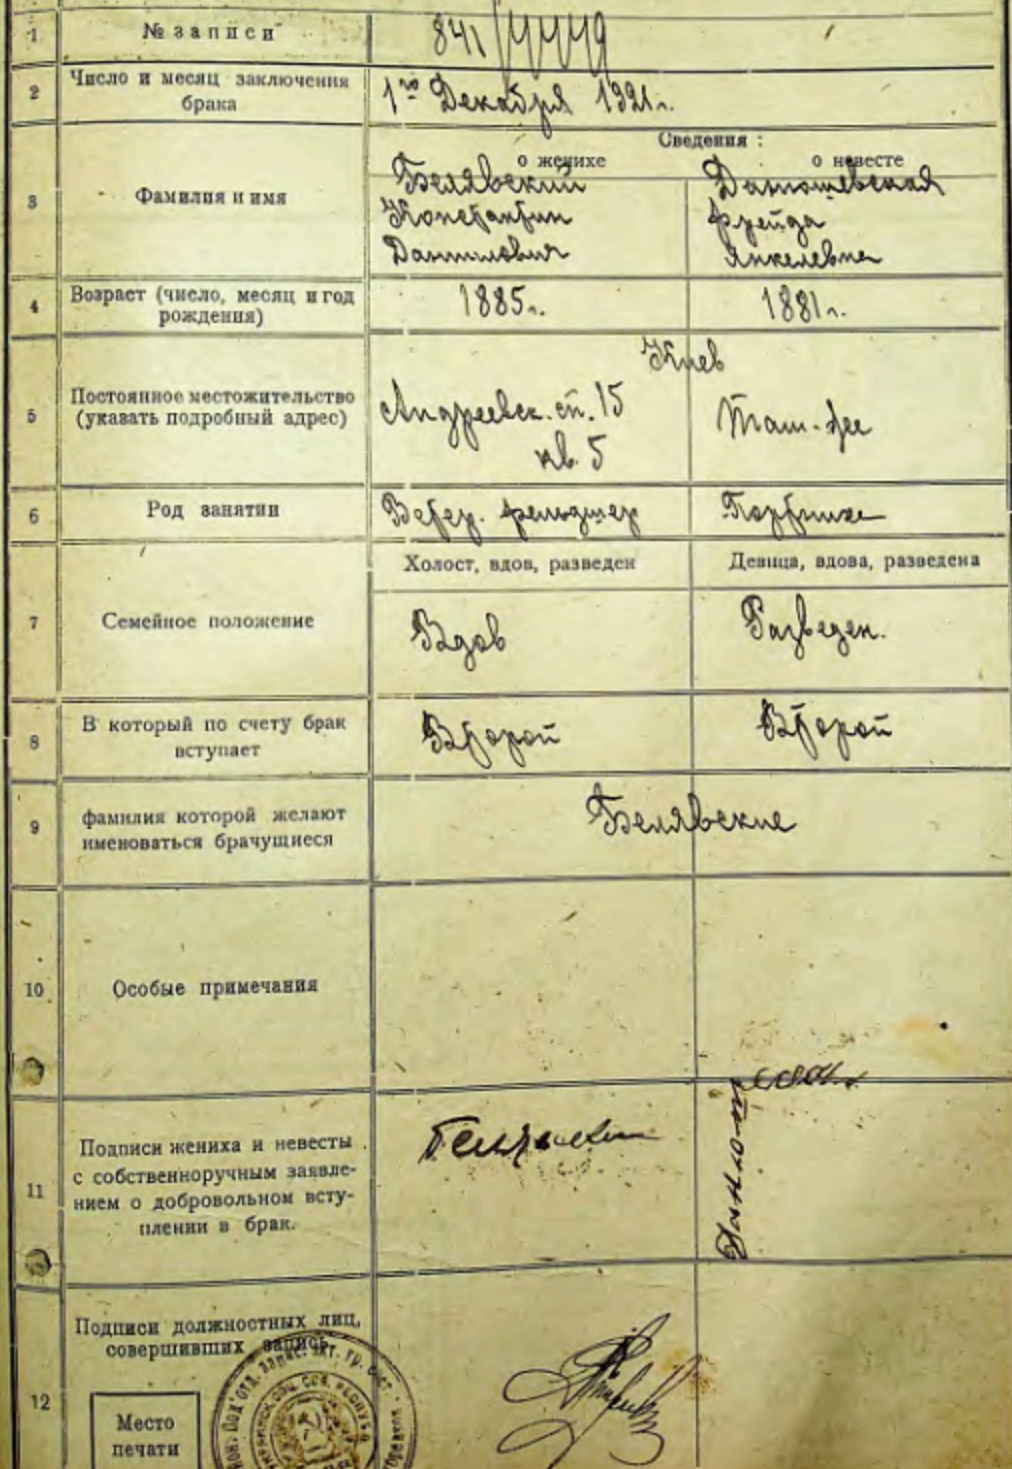 1 № записи 841/4449
2 Число и месяц заключения
брака
1го Декабря 1921г.
Сведения:
о женихе о невесте
3 Фамилия и имя
Белявский
Константин
Данилович
Данюшевская
Фрейда
Янкелевна
4 Возраст (число, месяц и год
рождения)
1885г. 1881г.
5 Постоянное местожительство
(указать подробный адрес)
Киев
Андреевск. сп. 15
кв. 5
Там-же
6 Род занятий Ветер. фельдшер Портниха
Холост, вдов, разведен Девица, вдова, разведена
7 Семейное положение Вдов Разведен.
8 В который по счету брак
вступает
Второй Второй
9 фамилия которой желают
именоваться брачущиеся
Белявские
10 Особые примечания
11 Подписи жениха и невесты
с собственноручным заявле-
нием о добровольном всту-
плении в брак.
12 Подписи должностных лиц,
совершивших запись
Место
печати